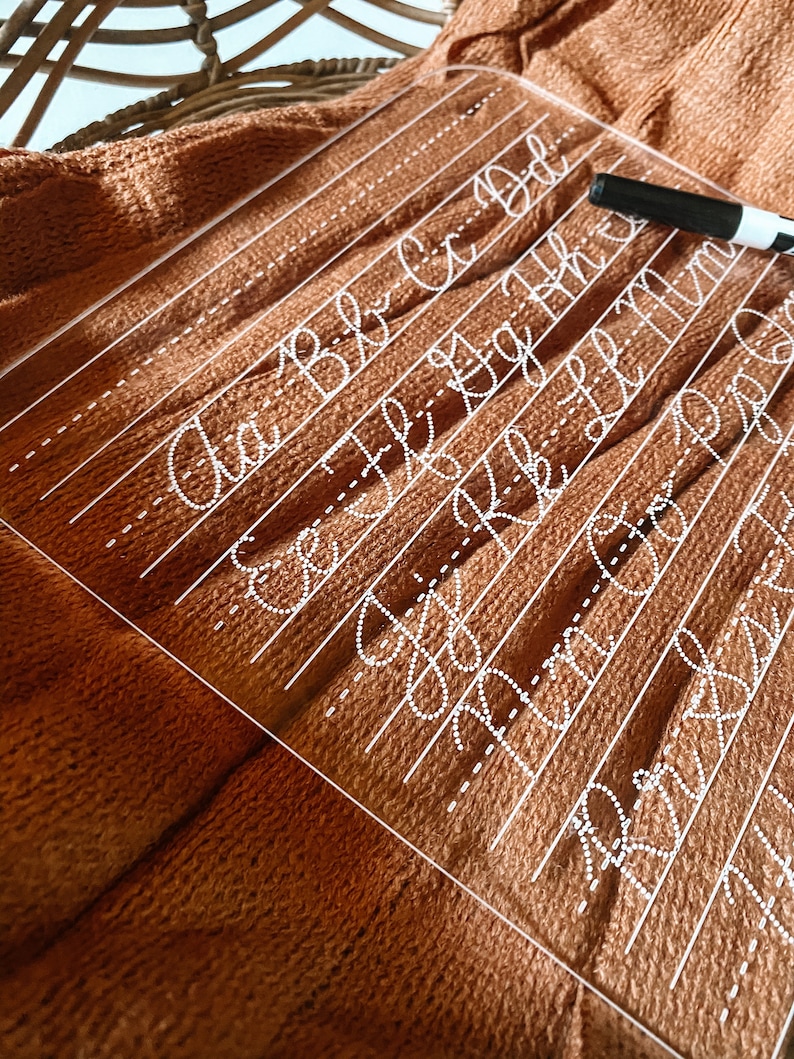 Aa Bb Cc Dd
Ee Ff Gg Hh
Jj Kk Ll Mm
Nn Oo Pp
Rr Ss